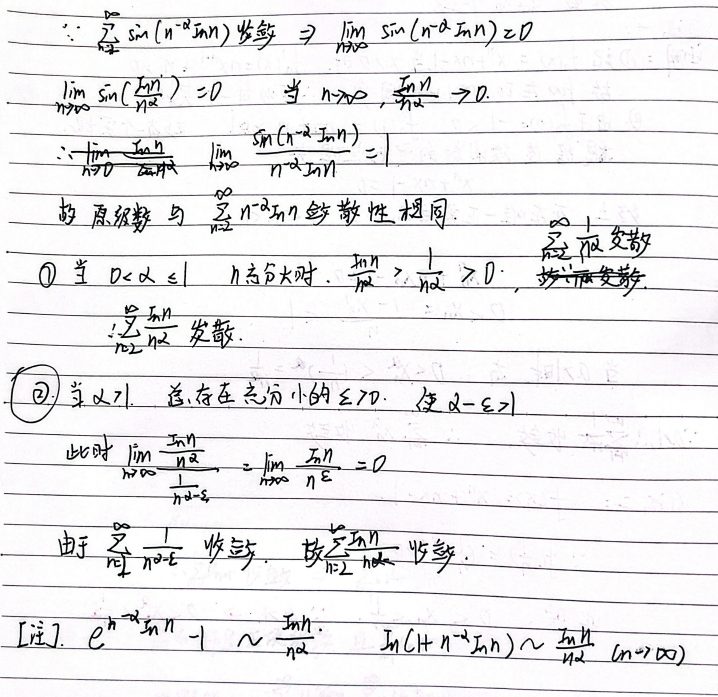 ∵ ∑_{n=2}^{∞} sin(n^{-α} ln n) 收敛 ⇒ lim_{n→∞} sin(n^{-α} ln n) = 0
lim_{n→∞} sin(ln n / n^α) = 0 当 n→∞, ln n / n^α → 0.
∴ lim_{n→∞} sin(n^{-α} ln n) / (n^{-α} ln n) = 1
故 原级数 与 ∑_{n=2}^{∞} n^{-α} ln n 敛散性相同
① 当 0<α≤1 n充分大时. ln n / n^α > 1 / n^α > 0. ∑_{n=2}^{∞} 1 / n^α 发散
∴ ∑_{n=2}^{∞} ln n / n^α 发散.
② 当 α>1. 总存在充分小的 ε>0. 使 α-ε>1
此时 lim_{n→∞} (ln n / n^α) / (1 / n^{α-ε}) = lim_{n→∞} ln n / n^ε = 0
由于 ∑_{n=1}^{∞} 1 / n^{α-ε} 收敛. 故 ∑_{n=2}^{∞} ln n / n^α 收敛.
[注]. e^{n^{-α} ln n} - 1 ~ ln n / n^α. ln(1+n^{-α} ln n) ~ ln n / n^α (n→∞)